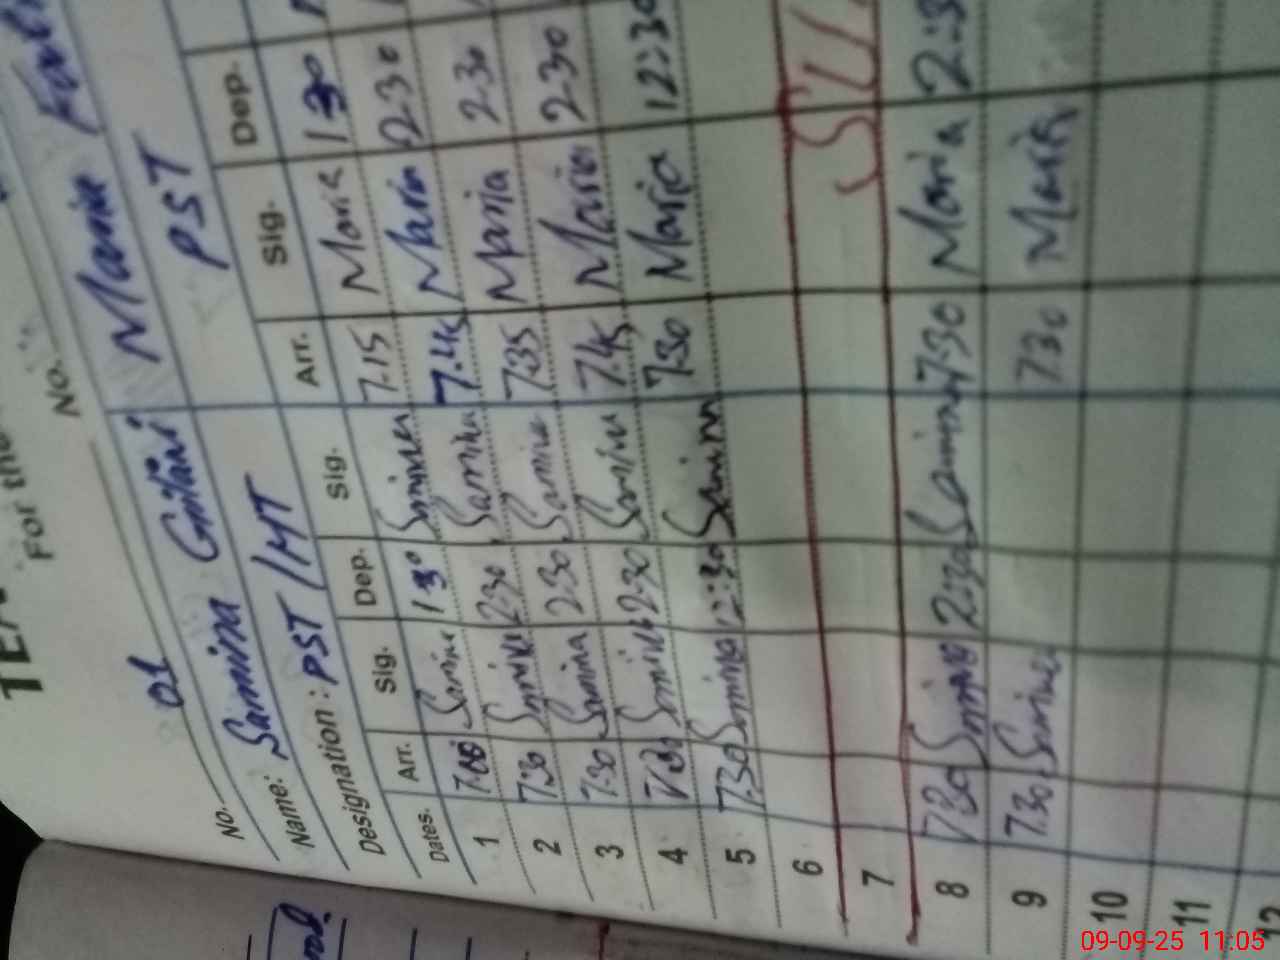 For the
No. 01 No.
Name: Samina Gillani Maria
Designation: PST/MT PST
Dates. Arr. Sig. Dep. Sig. Arr. Sig. Dep.
1 7.00 Samina 1 30 Samina 7.15 Maria 1 30
2 7.30 Samina 2.30 Samina 7.45 Maria 2.30
3 7.30 Samina 2.30 Samina 7.35 Maria 2.30
4 7.30 Samina 2.30 Samina 7.45 Maria 2.30
5 7.30 Samina 12:30 Samina 7.30 Maria 12:30
6
7
8 7.30 Samina 2.30 Samina 7.30 Maria
9 7.30 Samina 7.30 Maria
10
11
12
09-09-25 11:05